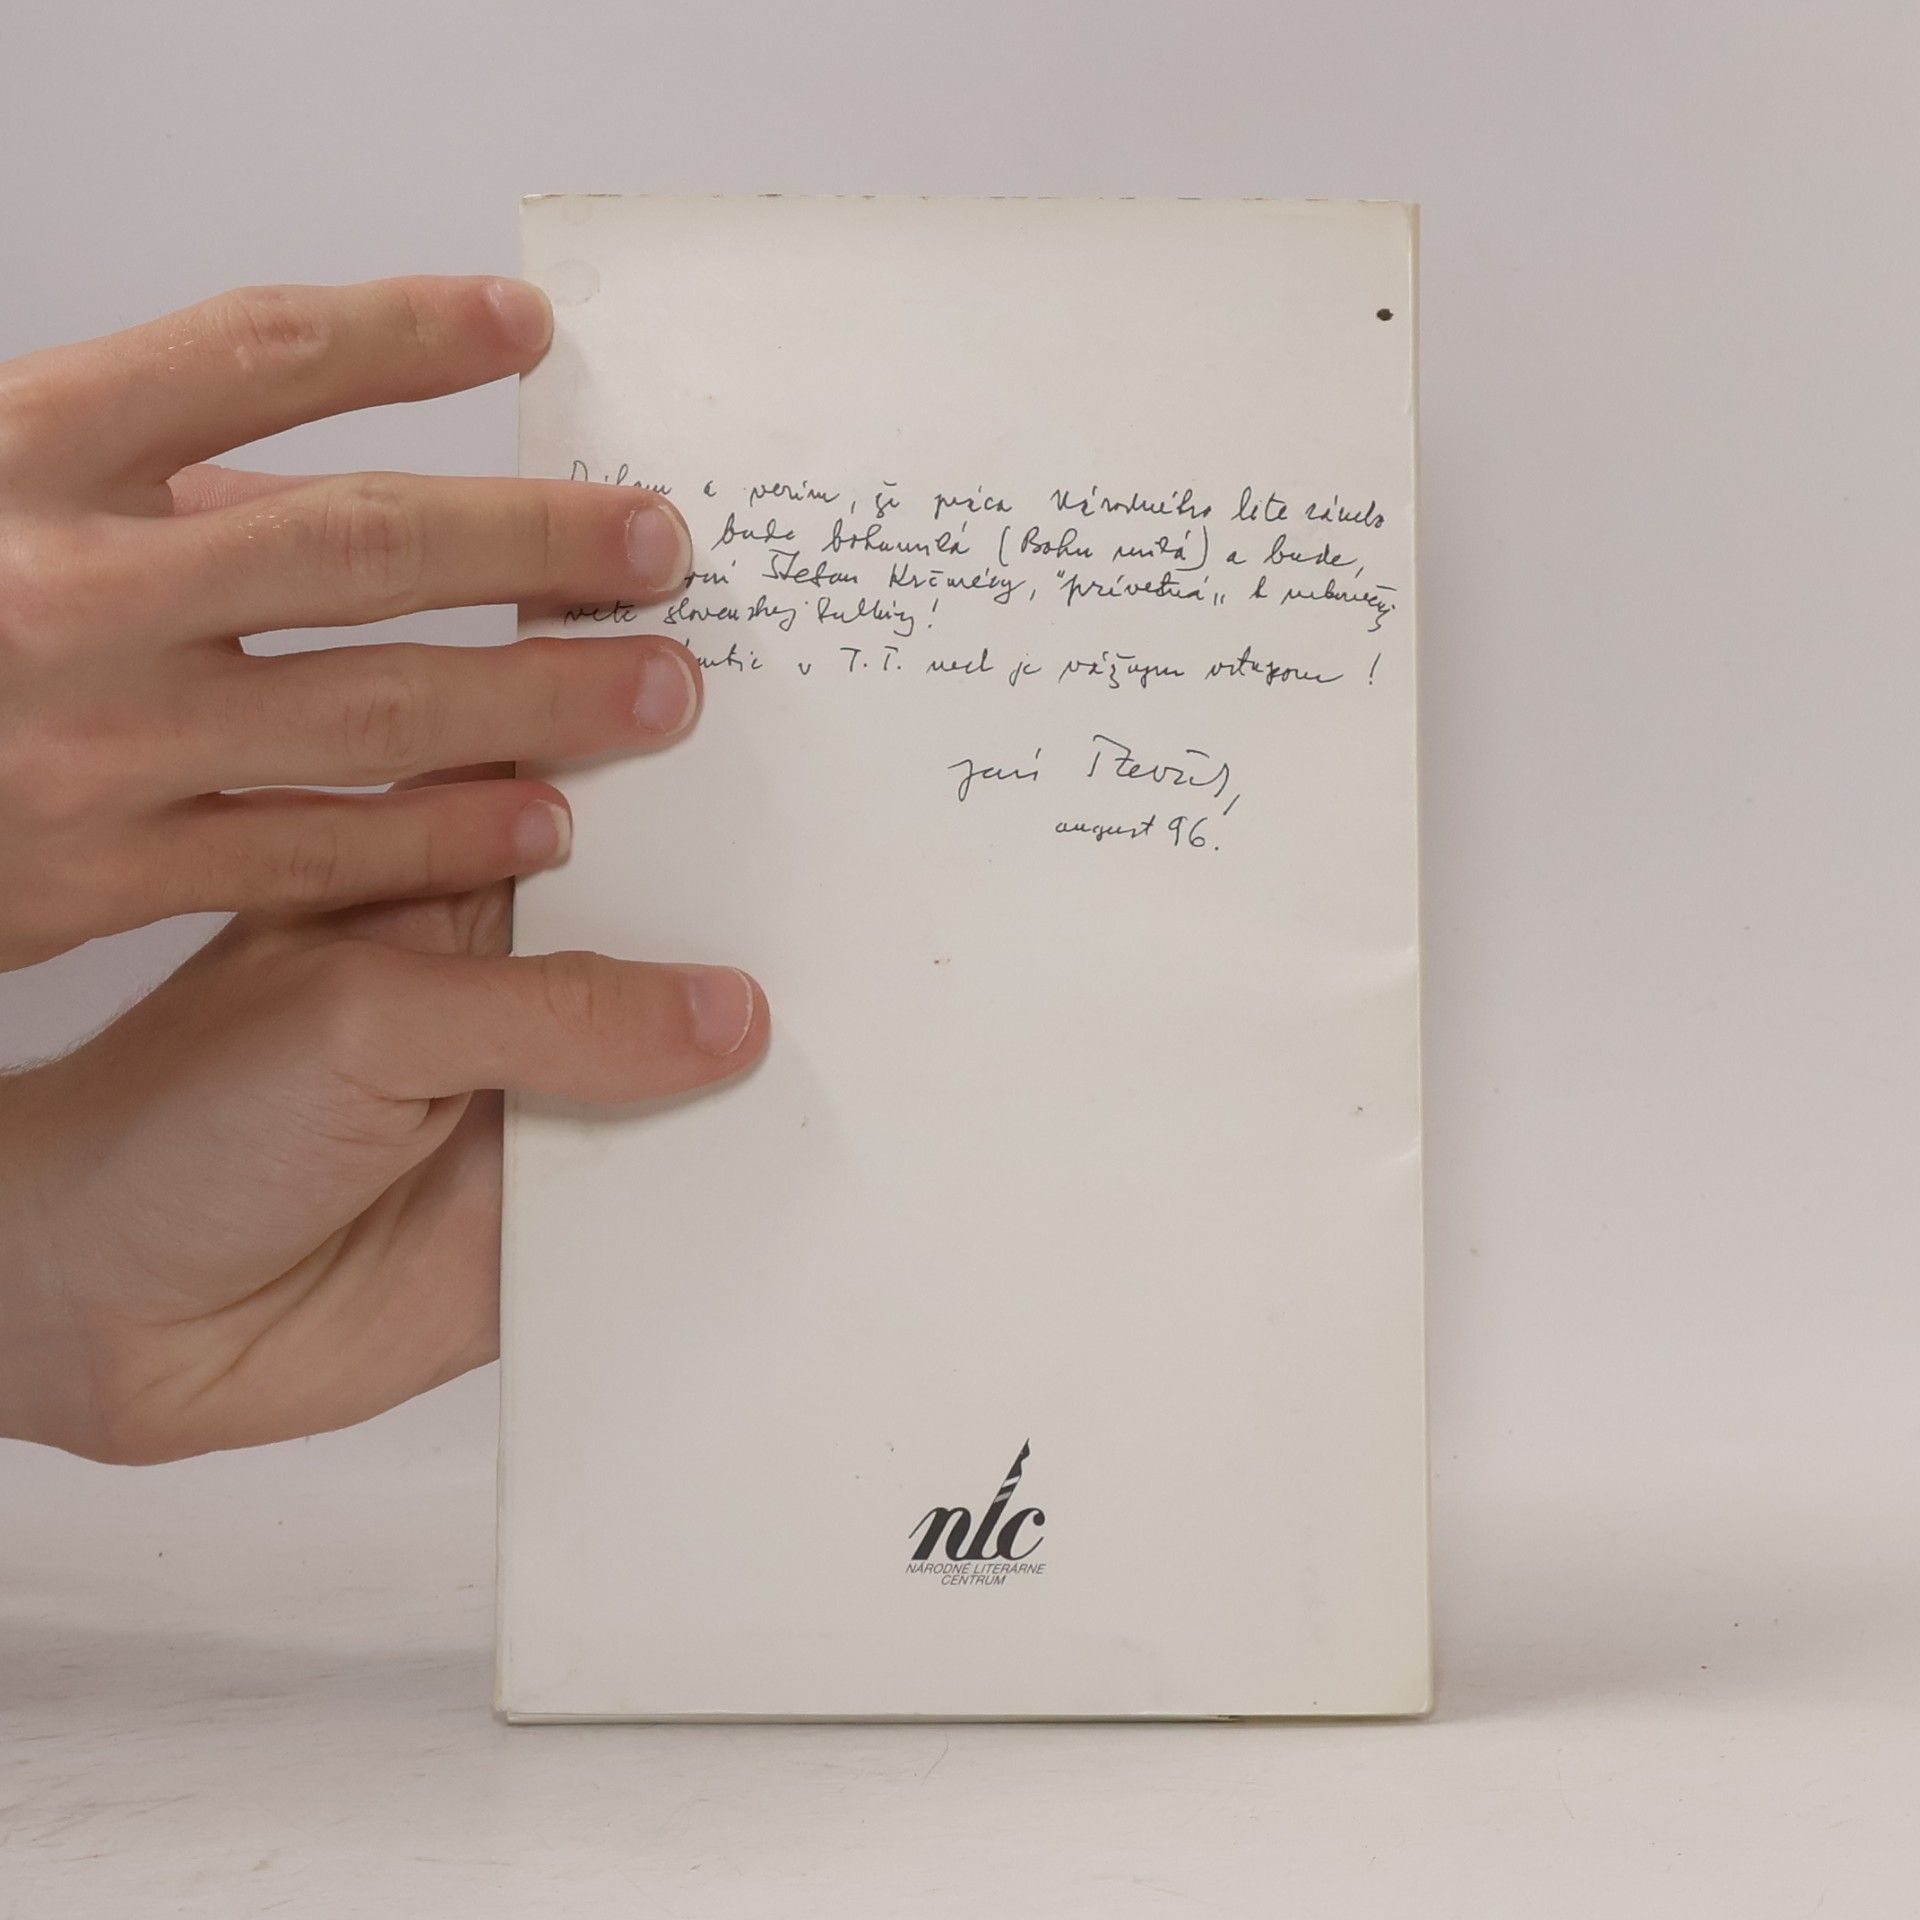 a verím, že práca Národného literárneho
bude bohumilá (Bohu milá) a bude,
Štefan Krčméry, "prívetivá" k
slovenskej kultúry!
v T. T. nech je vážnym vstupom!
august 96.
nlc
NÁRODNÉ LITERÁRNE
CENTRUM